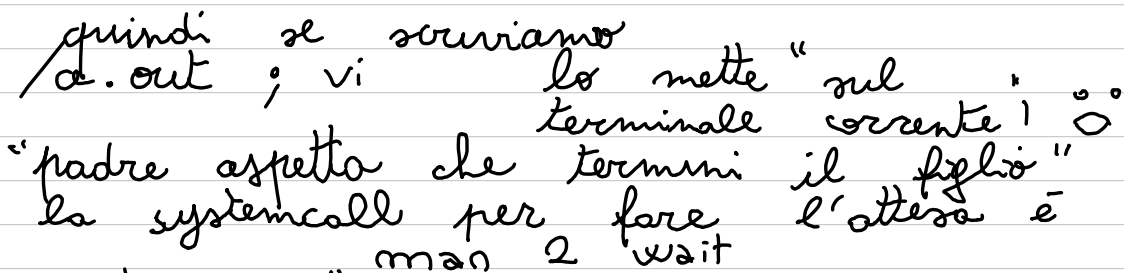 quindi se scriviamo
/a.out ; vi lo mette "sul
terminale corrente"!
"padre aspetta che termini il figlio"
la systemcall per fare l'attesa è
man 2 wait